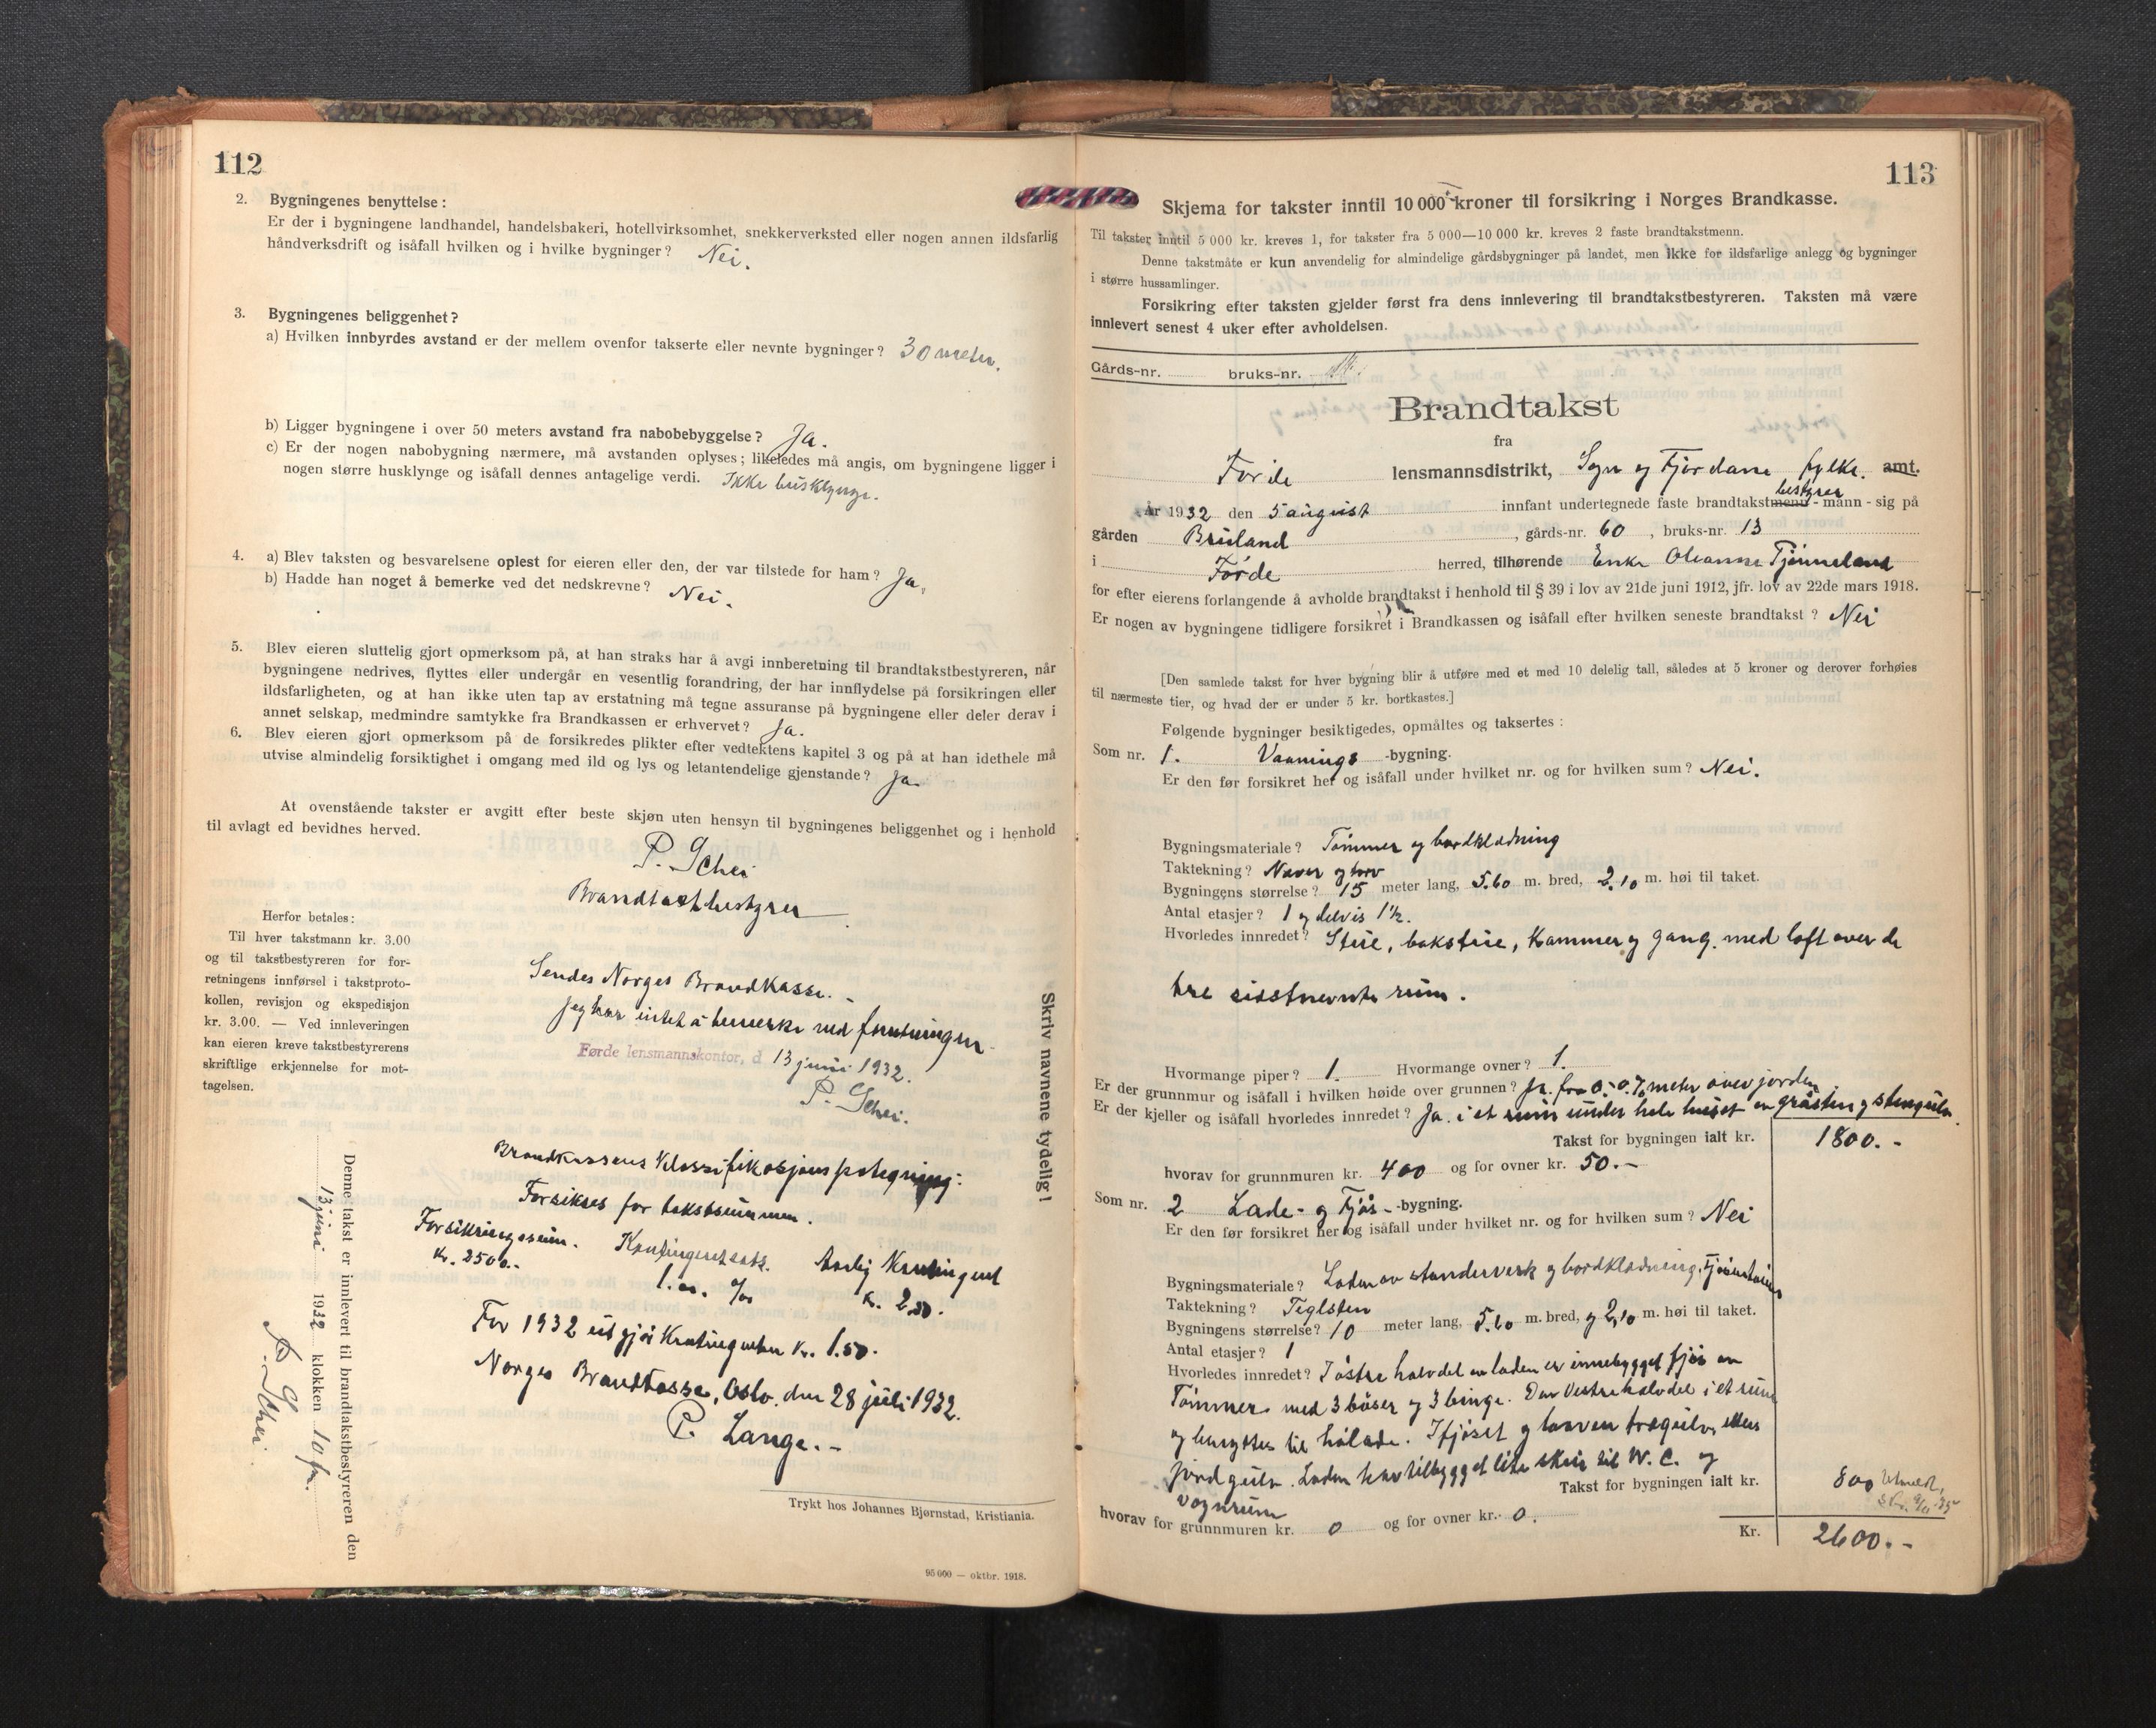 112
2. Bygningenes benyttelse:
Er der i bygningene landhandel, handelsbakeri, hotellvirksomhet, snekkerverksted eller nogen annen ildsfarlig
håndverksdrift og isåfall hvilken og i hvilke bygninger? Nei.
3. Bygningenes beliggenhet?
a) Hvilken innbyrdes avstand er der mellem ovenfor takserte eller nevnte bygninger? 30 meter.
b) Ligger bygningene i over 50 meters avstand fra nabobebyggelse? Ja.
c) Er der nogen nabobygning nærmere, må avstanden oplyses; likeledes må angis, om bygningene ligger i
nogen større husklynge og isåfall dennes antagelige verdi. Ikke husklynge.
4. a) Blev taksten og besvarelsene oplest for eieren eller den, der var tilstede for ham? Ja.
b) Hadde han noget å bemerke ved det nedskrevne? Nei.
5. Blev eieren sluttelig gjort opmerksom på, at han straks har å avgi innberetning til brandtakstbestyreren, når
bygningene nedrives, flyttes eller undergår en vesentlig forandring, der har innflydelse på forsikringen eller
ildsfarligheten, og at han ikke uten tap av erstatning må tegne assuranse på bygningene eller deler derav i
annet selskap, medmindre samtykke fra Brandkassen er erhvervet? Ja.
6. Blev eieren gjort opmerksom på de forsikredes plikter efter vedtektens kapitel 3 og på at han idethele må
utvise almindelig forsiktighet i omgang med ild og lys og letantendelige gjenstande? Ja.
At ovenstående takster er avgitt efter beste skjøn uten hensyn til bygningenes beliggenhet og i henhold
til avlagt ed bevidnes herved.
P. Schei
Brandtakstbestyrer
Herfor betales:
Til hver takstmann kr. 3.00
og til takstbestyreren for for-
retningens innførsel i takstproto-
kollen, revisjon og ekspedisjon
kr. 3.00. — Ved innleveringen
kan eieren kreve takstbestyrerens
skriftlige erkjennelse for mot-
tagelsen.
Sendes Norges Brandkasse. -
Jeg har intet å bemerke ved forretningen.
Førde lensmannskontor, d 13 juni 1932.
P. Schei.
Brandkassens Klassifikasjonspategning:
Forsikres for takstsummen.
Forsikringssum. Kontingentsats. Aarlig Kontingent
Kr. 2500.- 1.00 % Kr. 2.50.
For 1932 utgjör Kontingenten Kr. 1.50.
Norges Brandkasse, Oslo, den 28 juli 1932.
P. Lange. -
Skriv navnene tydelig!
Denne takst er innlevert til brandtakstbestyreren den
13 juni 1932 klokken 10 fm.
P. Schei.
Trykt hos Johannes Bjørnstad, Kristiania.
95 000 — oktbr. 1918.
113
Skjema for takster inntil 10 000 kroner til forsikring i Norges Brandkasse.
Til takster inntil 5 000 kr. kreves 1, for takster fra 5 000—10 000 kr. kreves 2 faste brandtakstmenn.
Denne takstmåte er kun anvendelig for almindelige gårdsbygninger på landet, men ikke for ildsfarlige anlegg og bygninger
i større hussamlinger.
Forsikring efter taksten gjelder først fra dens innlevering til brandtakstbestyreren. Taksten må være
innlevert senest 4 uker efter avholdelsen.
Gårds-nr. bruks-nr.
Brandtakst
fra
Førde lensmannsdistrikt, Sogn og Fjordane fylke. amt.
År 1932 den 5 august innfant undertegnede faste brandtakstmenn - mann - sig på
bestyrer
gården Bruland, gårds-nr. 60, bruks-nr. 13
i Førde herred, tilhørende Enke Oleanna Tjønneland
for efter eierens forlangende å avholde brandtakst i henhold til § 39 i lov av 21de juni 1912, jfr. lov av 22de mars 1918.
Er nogen av bygningene tidligere forsikret i Brandkassen og isåfall efter hvilken seneste brandtakst? Nei
[Den samlede takst for hver bygning blir å utføre med et med 10 delelig tall, således at 5 kroner og derover forhøies
til nærmeste tier, og hvad der er under 5 kr. bortkastes.]
Følgende bygninger besiktigedes, opmåltes og taksertes:
Som nr. 1. Vaanings -bygning.
Er den før forsikret her og isåfall under hvilket nr. og for hvilken sum? Nei.
Bygningsmateriale? Tömmer og bordklædning
Taktekning? Næver og torv
Bygningens størrelse? 15 meter lang, 5.60 m. bred, 2.10 m. høi til taket.
Antal etasjer? 1 og delvis 1½.
Hvorledes innredet? Stue, bakstue, Kammer og gang. med loft over de
tre sisstnevnte rum.
Hvormange piper? 1. Hvormange ovner? 1.
Er der grunnmur og isåfall i hvilken høide over grunnen? Ja. fra 0-0.70 meter over jorden.
Er der kjeller og isåfall hvorledes innredet? Ja. i et rum under hele huset av gråsten og stengulv.
Takst for bygningen ialt kr. 1800.-
hvorav for grunnmuren kr. 400 og for ovner kr. 50.-
Som nr. 2 Lade- og Fjös- -bygning.
Er den før forsikret her og isåfall under hvilket nr. og for hvilken sum? Nei
Bygningsmateriale? Laden av stenderverk og bordklædning,
Taktekning? Teglsten
Bygningens størrelse? 10 meter lang, 5.60 m. bred, og 2,10 m. høi til taket.
Antal etasjer? 1
Hvorledes innredet? I östre halvdel av laden er innebygget fjös av
Tömmer med 3 båser og 3 binge. Den Vestre halvdel i et rum
og benyttes til hölade. I fjöset og laaven trægulv, ellers
jordgulv. Laden har tilbygget lite skur til W. C. og
vognrum
Takst for bygningen ialt kr. 800 Utmeldt,
hvorav for grunnmuren kr. 0 og for ovner kr. 0.
Kr. 2600.-